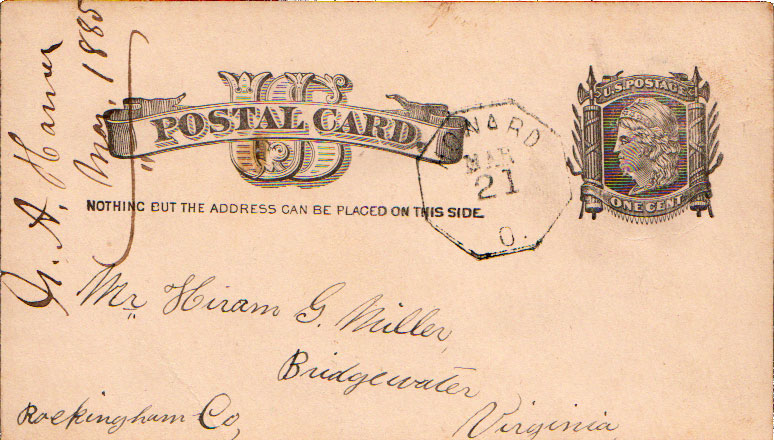 G. A. Harner
Mar. 1885
US
POSTAL CARD.
NOTHING BUT THE ADDRESS CAN BE PLACED ON THIS SIDE.
MAR
21
O.
U.S. POSTAGE
ONE CENT
Mr Hiram G. Miller,
Bridgewater
Rockingham Co,
Virginia